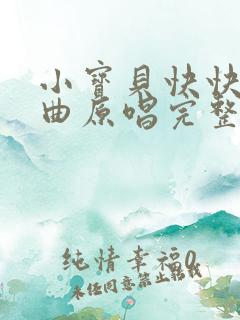 小寳貝快快
曲原唱完整
纯情幸福0
未经同意禁止转载